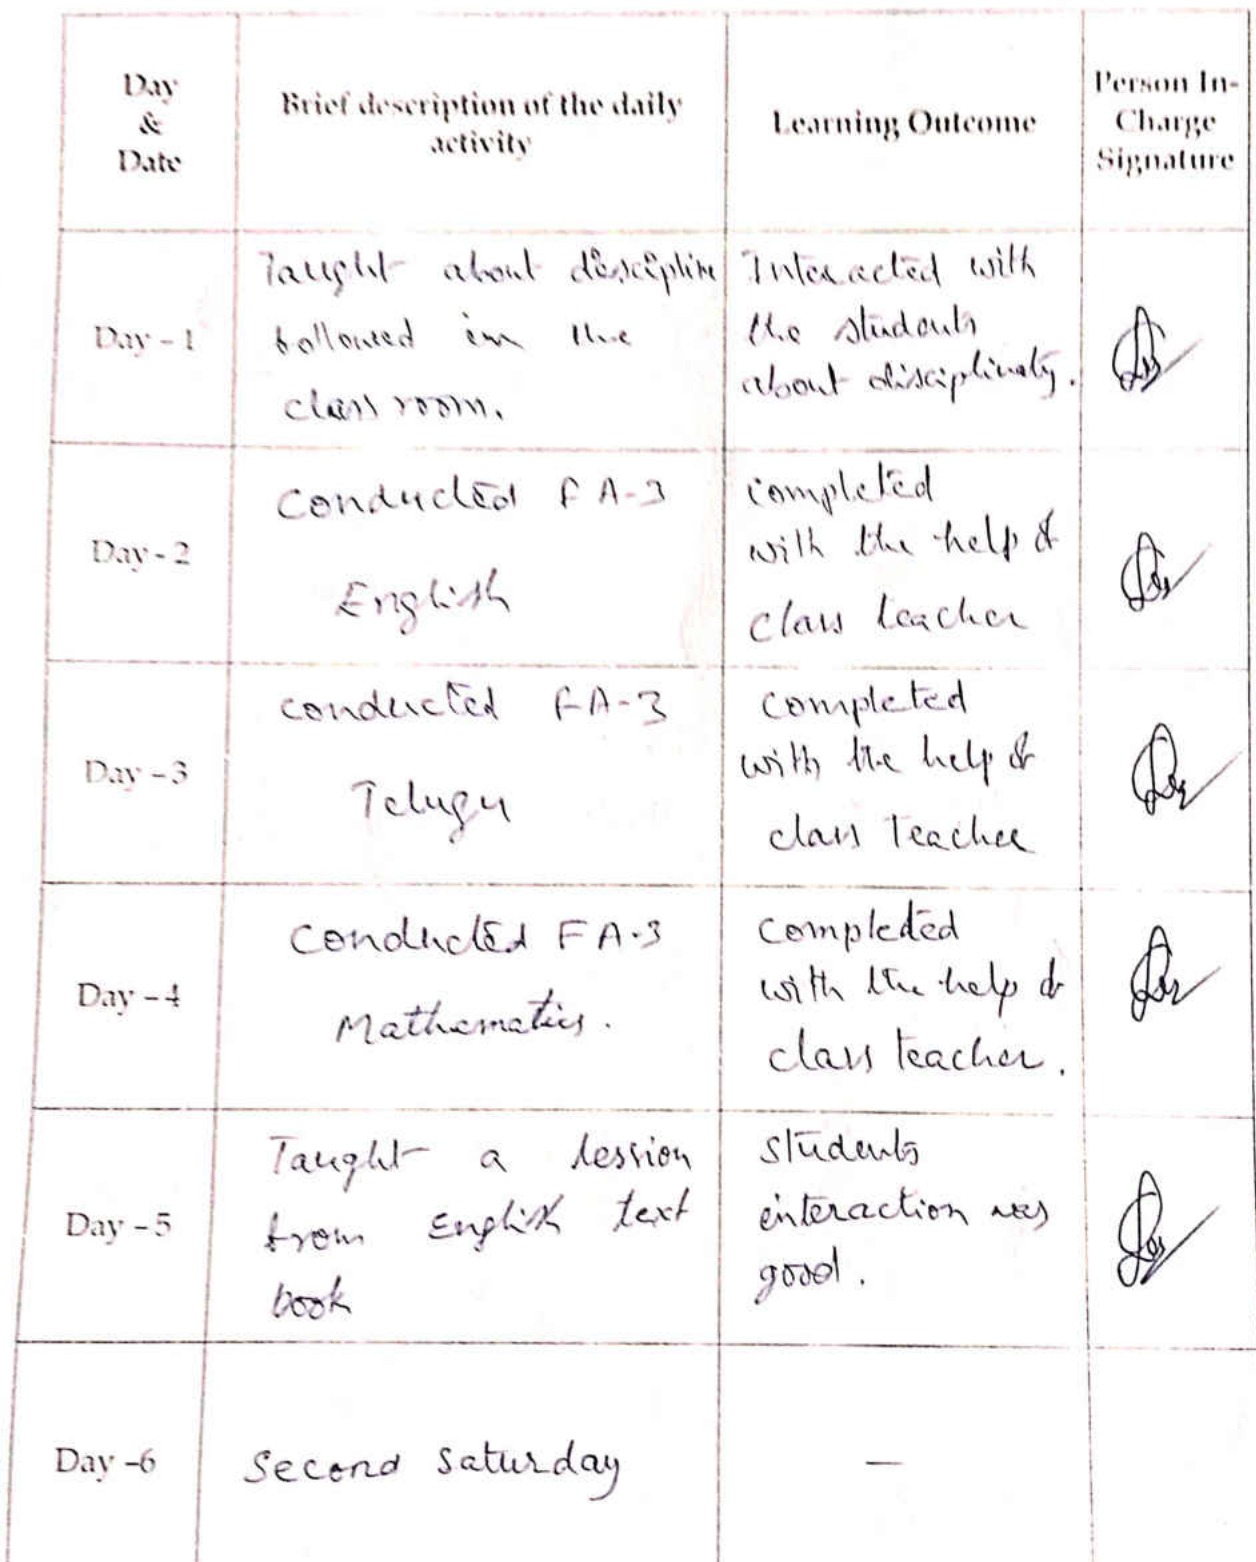 Day
&
Date
Brief description of the daily
activity
Learning Outcome
Person In-
Charge
Signature
Day - 1
Taught about discipline
followed in the
class room.
Interacted with
the students
about disciplinaty.
Day - 2
Conducted FA-3
English
completed
with the help of
class teacher
Day - 3
conducted FA-3
Telugu
completed
with the help of
class Teacher
Day - 4
Conducted FA-3
Mathematics.
completed
with the help of
class teacher.
Day - 5
Taught a lession
from English text
book
students
interaction was
good.
Day -6
Second Saturday
—